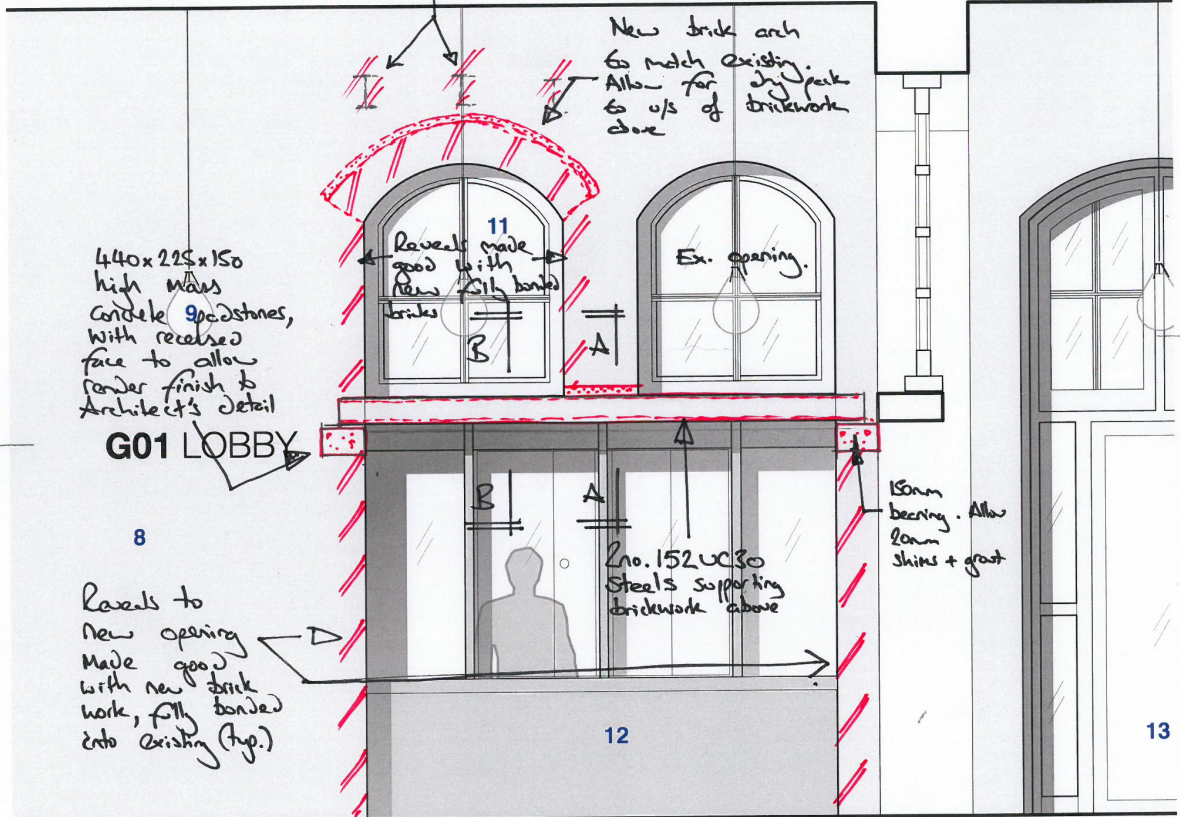 New brick arch
to match existing.
Allow for dry pack
to u/s of brickwork
above
11
Reveals made
good with
new fully bonded
bricks
Ex. opening.
B
A
440x225x150
high mass
concrete padstones,
9
with recessed
face to allow
render finish to
Architect's detail
G01 LOBBY
8
B
A
150mm
bearing. Allow
20mm
shims + grout
2no. 152UC30
steels supporting
brickwork above
Reveals to
new opening
made good
with new brick
work, fully bonded
into existing (typ.)
12
13